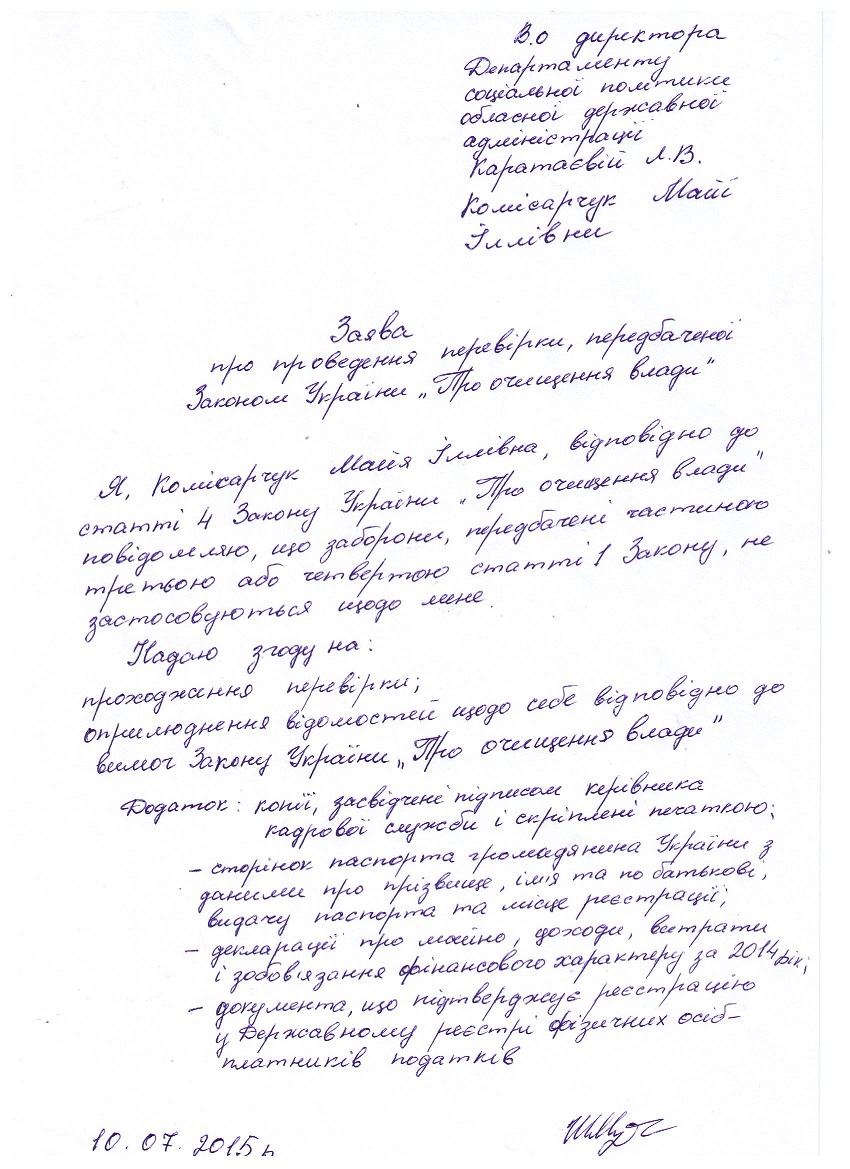 В.о директора
Департаменту
соціальної політики
обласної державної
адміністрації
Каратаєвій Л.В.
Комісарчук Майї
Іллівни
Заява
про проведення перевірки, передбаченої
Законом України „Про очищення влади"
Я, Комісарчук Майя Іллівна, відповідно до
статті 4 Закону України „Про очищення влади"
повідомляю, що заборони, передбачені частиною
третьою або четвертою статті 1 Закону, не
застосовуються щодо мене.
Надаю згоду на:
проходження перевірки;
оприлюднення відомостей щодо себе відповідно до
вимог Закону України „Про очищення влади"
Додаток: копії, засвідчені підписом керівника
кадрової служби і скріплені печаткою;
– сторінок паспорта громадянина України з
даними про прізвище, ім'я та по батькові,
видачу паспорта та місце реєстрації;
– декларації про майно, доходи, витрати
і зобов'язання фінансового характеру за 2014 рік;
– документа, що підтверджує реєстрацію
у Державному реєстрі фізичних осіб–
платників податків
10.07.2015р